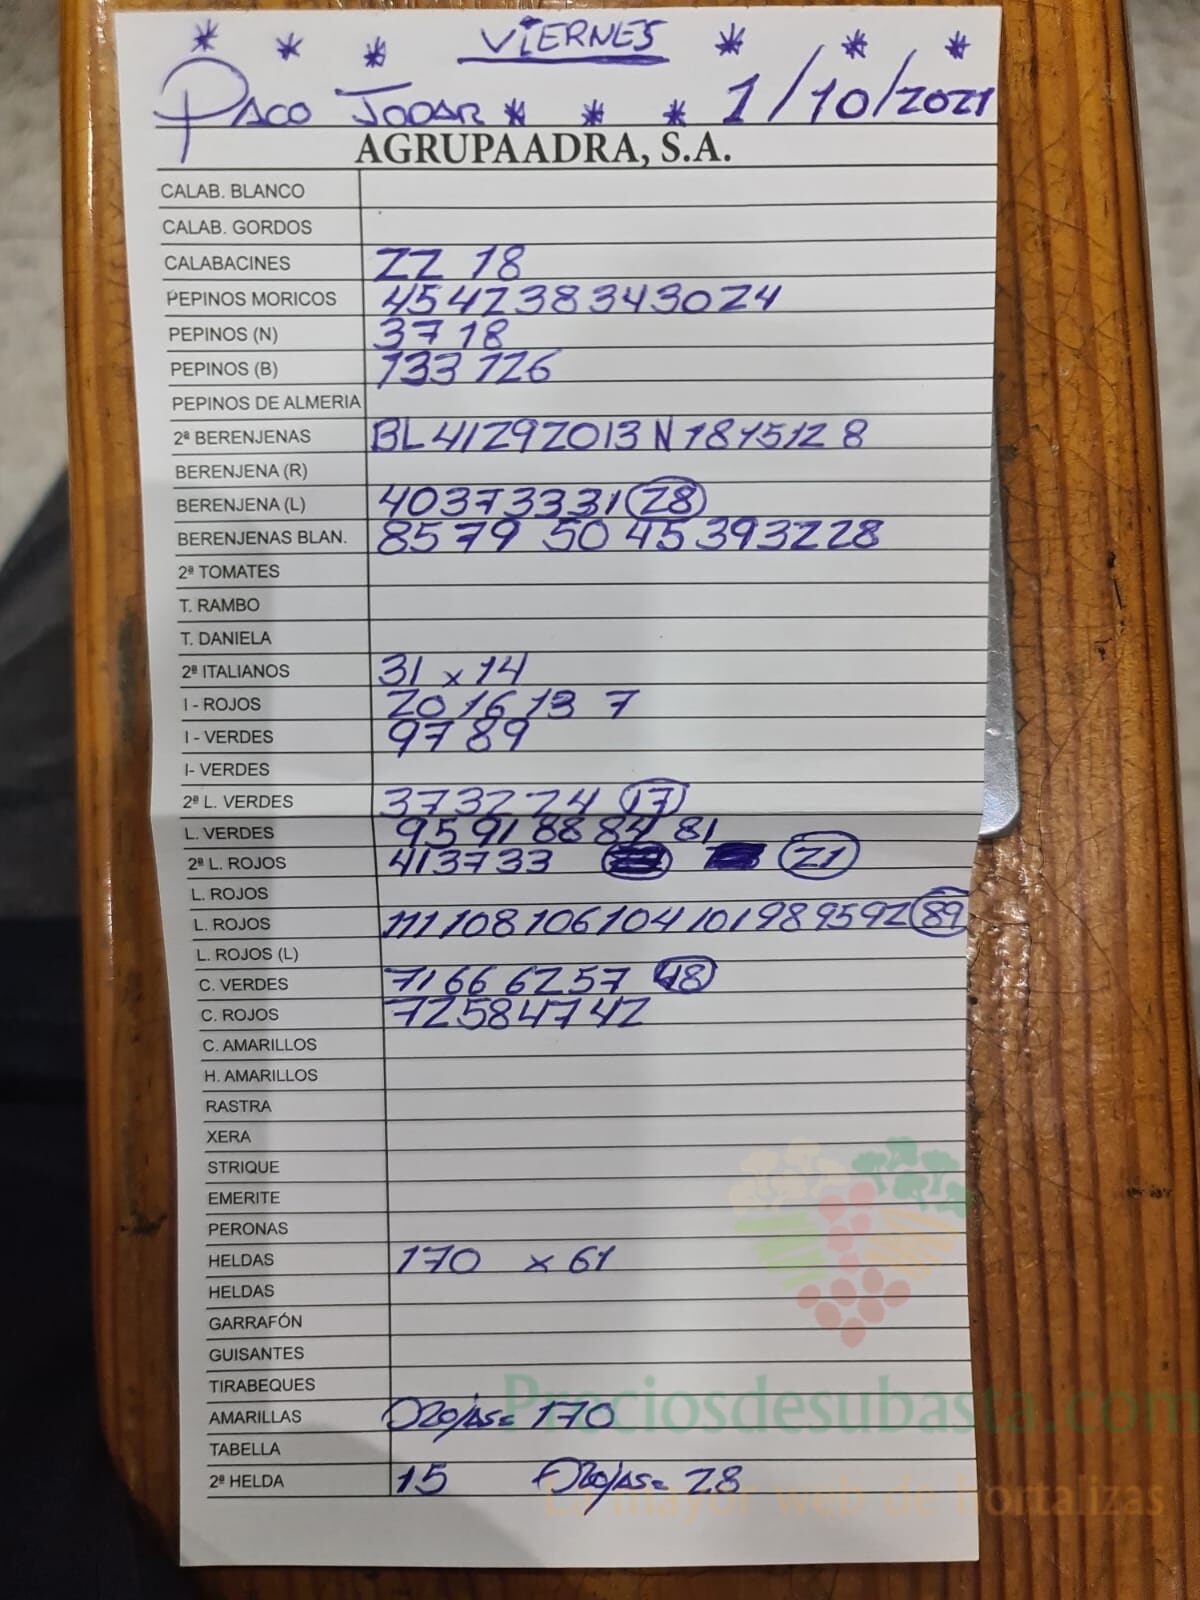 * * * VIERNES * * *
PACO JODAR * * * 1/10/2021
AGRUPAADRA, S.A.
CALAB. BLANCO
CALAB. GORDOS
CALABACINES 22 18
PEPINOS MORICOS 45 42 38 34 30 24
PEPINOS (N) 37 18
PEPINOS (B) 133 126
PEPINOS DE ALMERIA
2ª BERENJENAS BL 41 29 20 13 N 18 15 12 8
BERENJENA (R)
BERENJENA (L) 40 37 33 31 28
BERENJENAS BLAN. 85 79 50 45 39 32 28
2ª TOMATES
T. RAMBO
T. DANIELA
2ª ITALIANOS 31 x 14
I - ROJOS 20 16 13 7
I - VERDES 97 89
I- VERDES
2ª L. VERDES 37 32 24 17
L. VERDES 95 91 88 84 81
2ª L. ROJOS 41 37 33 21
L. ROJOS
L. ROJOS 111 108 106 104 101 98 95 92 89
L. ROJOS (L)
C. VERDES 71 66 62 57 48
C. ROJOS 72 58 47 42
C. AMARILLOS
H. AMARILLOS
RASTRA
XERA
STRIQUE
EMERITE
PERONAS
HELDAS 170 x 61
HELDAS
GARRAFÓN
GUISANTES
TIRABEQUES
Preciosdesubasta.com
AMARILLAS = 170
TABELLA
2ª HELDA 15 = 28
La mayor web de hortalizas